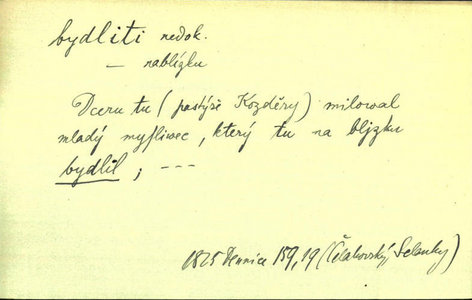 bydliti nedok.
— nablízku
Dceru tu (pastýře Kozděry) milowal
mladý myſliwec, který tu na bljzku
bydlil; ---
1825 Dennice 159,19 (Čelakovský, Selanky)